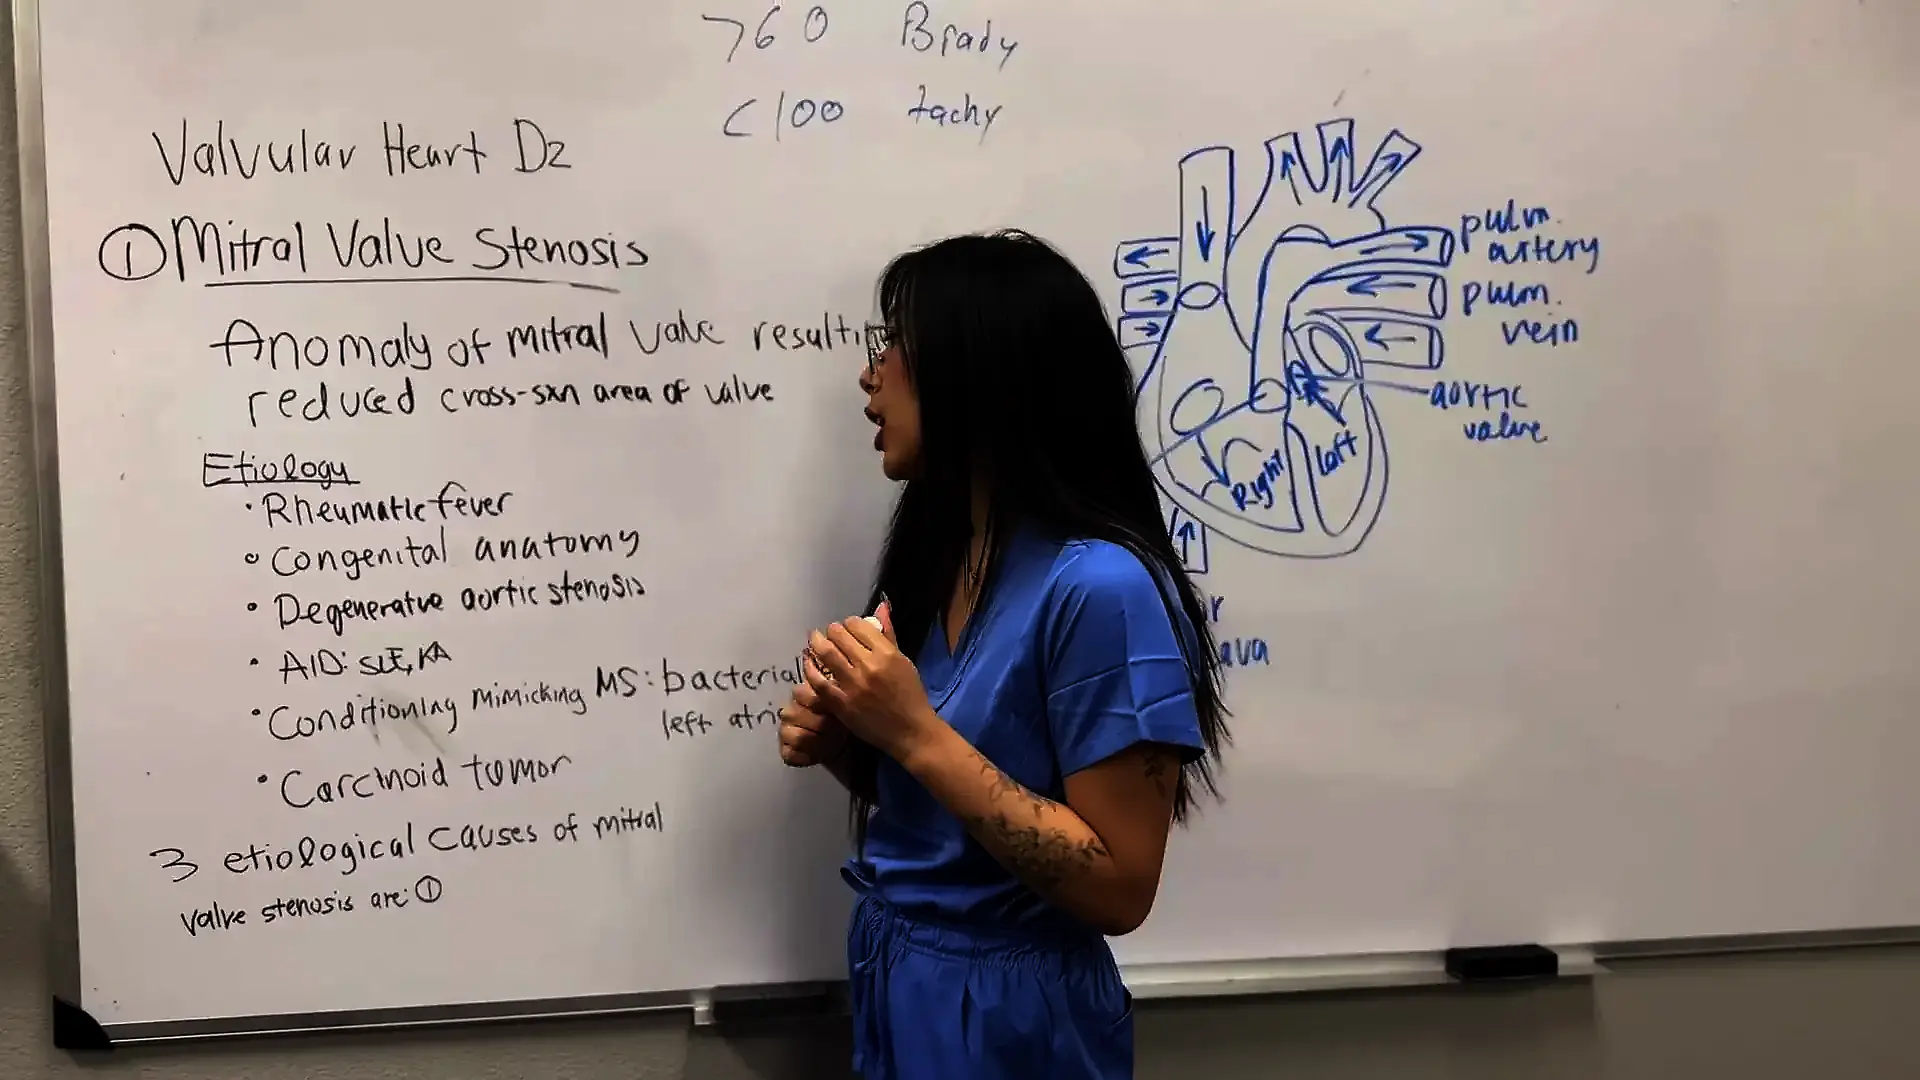 >60 Brady
<100 tachy
Valvular Heart Dz
① Mitral Valve Stenosis
Anomaly of mitral valve resultin
reduced cross-sxn area of valve
Etiology
• Rheumatic fever
• Congenital anatomy
• Degenerative aortic stenosis
• AID: SLE, RA
• Conditioning mimicking MS: bacterial
left atri
• Carcinoid tumor
3 etiological causes of mitral
valve stenosis are: ①
pulm.
artery
pulm.
vein
aortic
valve
Right
Left
r
ava